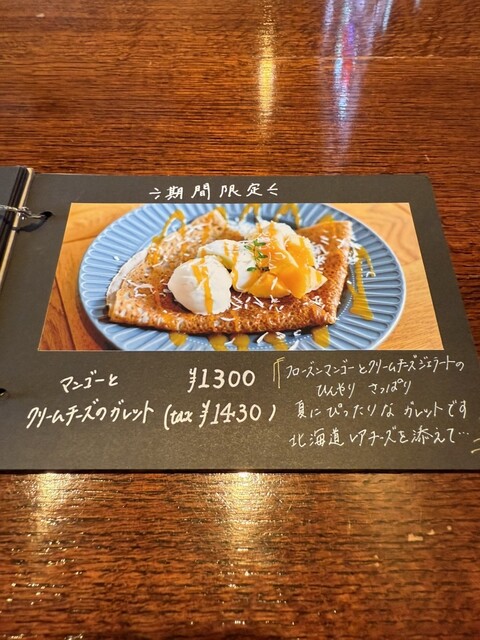 期間限定
マンゴーと
クリームチーズのガレット
¥1300
(tax ¥1430)
フローズンマンゴーとクリームチーズジェラートの
ひんやり さっぱり
夏にぴったりな ガレットです
北海道レアチーズを添えて…